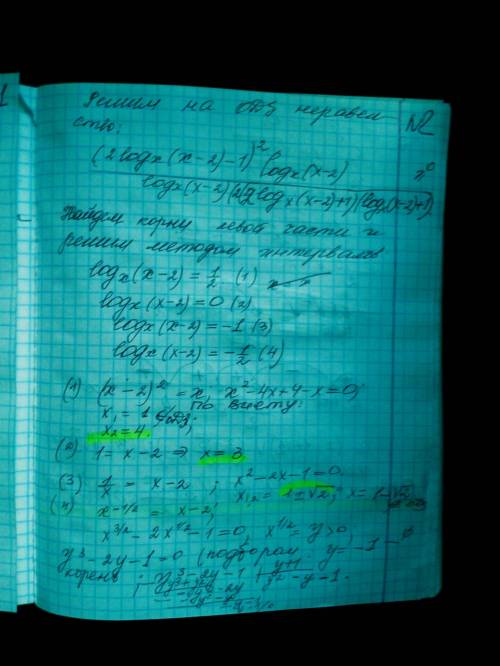 Решим на ОДЗ неравен
ство: N2
(2log_x(x-2)-1)^2 log_x(x-2)
log_x(x-2)(2log_x(x-2)+1)(log_x(x-2)+1)
Найдем корни левой части и
решим методом интервалов
log_x(x-2) = 1/2 (1)
log_x(x-2) = 0 (2)
log_x(x-2) = -1 (3)
log_x(x-2) = -1/2 (4)
(1) (x-2)^2 = x, x^2-4x+4-x=0;
x_1 = 1 ОДЗ; по Виету:
x_2=4.
(2) 1 = x-2 ⇒ x = 3
(3) 1/x = x-2 ; x^2-2x-1=0.
x_1,2 = 1±√2; x = 1-√2
(4) x^-1/2 = x-2;
x^3/2 - 2x^1/2 - 1 = 0, x^1/2 = y > 0
y^3-2y-1=0 (подбором: y=-1 -
корень; y^3-2y-1 | y+1
y^2-y-1.